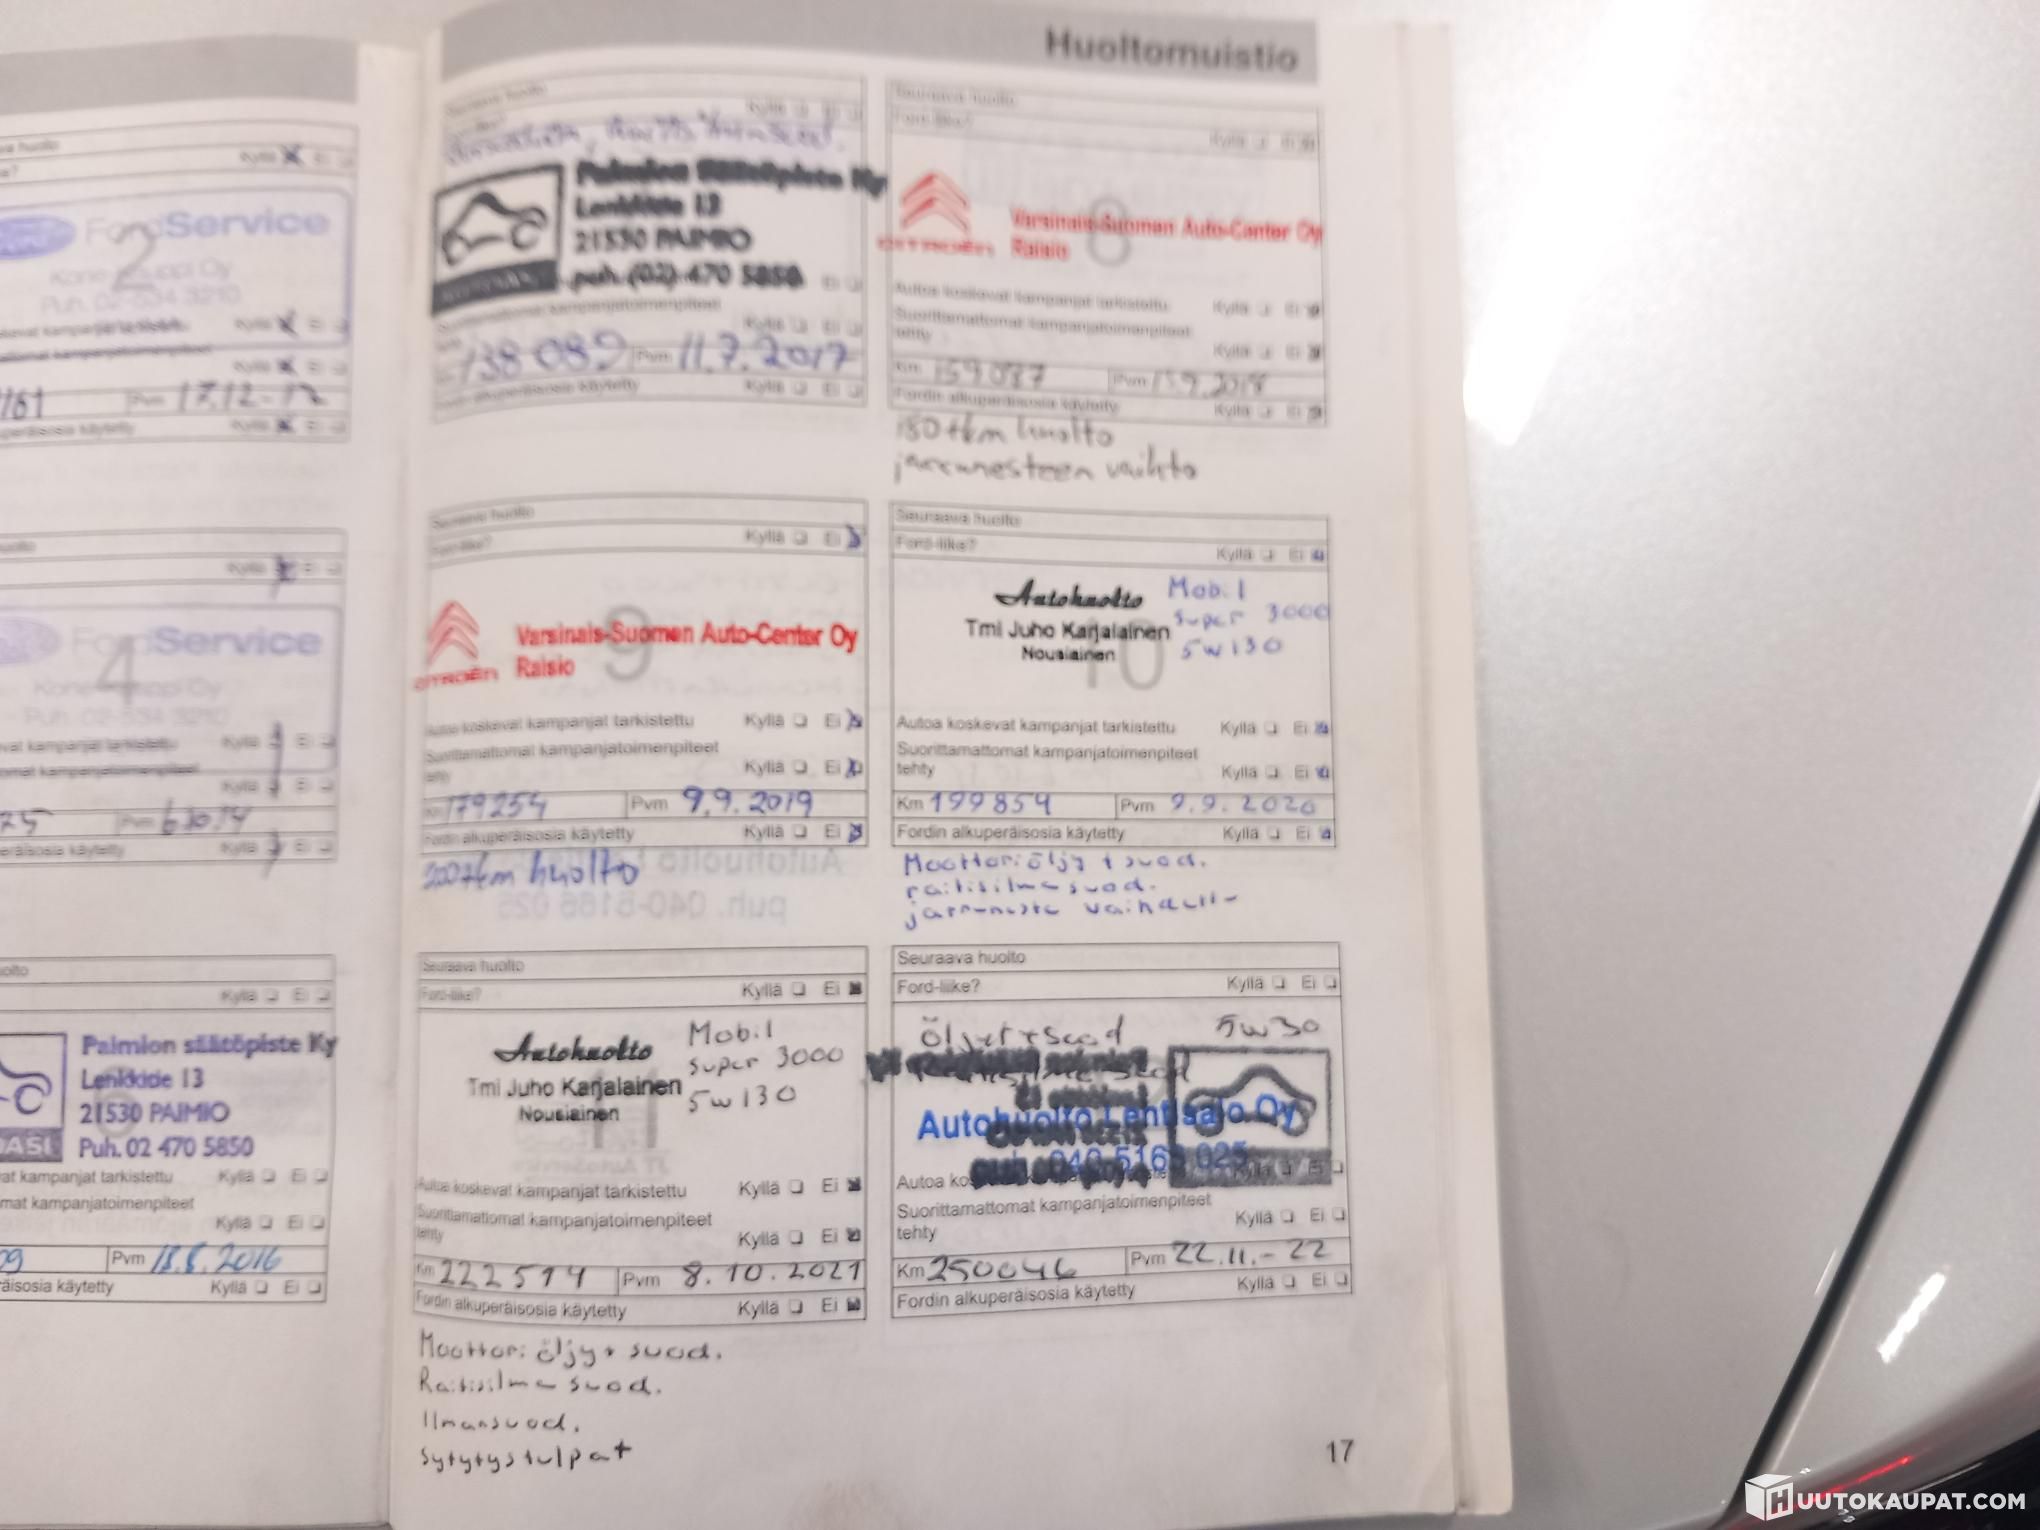 Huoltomuistio
huolto
Kyllä Ei
FordService
2
Kone-
Puh. 02-534 3210
kampanjat tarkistettu Kyllä Ei
kampanjatoimenpiteet
Kyllä Ei
161 Pvm 17.12-12
käytetty Kyllä Ei
Kyllä Ei
FordService
4
Kone-
Puh. 02-534 3210
kampanjat tarkistettu Kyllä Ei
kampanjatoimenpiteet
Kyllä Ei
25 Pvm 6.10.14
käytetty Kyllä Ei
Kyllä Ei
Paimion säätöpiste Ky
Lenkkide 13
21530 PAIMIO
Puh. 02 470 5850
kampanjat tarkistettu Kyllä Ei
kampanjatoimenpiteet
Kyllä Ei
09 Pvm 18.8.2016
käytetty Kyllä Ei
Seuraava huolto
Kyllä Ei
Paimion säätöpiste Ky
Lenkkide 13
21530 PAIMIO
puh. (02) 470 5850
Suorittamattomat kampanjatoimenpiteet
Kyllä Ei
138 089 Pvm 11.7.2017
Fordin alkuperäisosia käytetty Kyllä Ei
Seuraava huolto
Ford-liike?
Kyllä Ei
8
CITROËN
Varsinais-Suomen Auto-Center Oy
Raisio
Autoa koskevat kampanjat tarkistettu Kyllä Ei
Suorittamattomat kampanjatoimenpiteet
tehty Kyllä Ei
Km 159087 Pvm 2018
Fordin alkuperäisosia käytetty Kyllä Ei
180 tkm huolto
jarrunesteen vaihto
Seuraava huolto
Ford-liike? Kyllä Ei
9
CITROËN
Varsinais-Suomen Auto-Center Oy
Raisio
Autoa koskevat kampanjat tarkistettu Kyllä Ei
Suorittamattomat kampanjatoimenpiteet
tehty Kyllä Ei
Km 179254 Pvm 9.9.2019
Fordin alkuperäisosia käytetty Kyllä Ei
200 tkm huolto
Seuraava huolto
Ford-liike? Kyllä Ei
10
Autohuolto
Tmi Juho Karjalainen
Nousiainen
Mobil
super 3000
5w130
Autoa koskevat kampanjat tarkistettu Kyllä Ei
Suorittamattomat kampanjatoimenpiteet
tehty Kyllä Ei
Km 199854 Pvm 9.9.2020
Fordin alkuperäisosia käytetty Kyllä Ei
Moottoriöljy + suod.
raitisilmasuod.
Seuraava huolto
Ford-liike? Kyllä Ei
11
Autohuolto
Tmi Juho Karjalainen
Nousiainen
Mobil
super 3000
5w130
Autoa koskevat kampanjat tarkistettu Kyllä Ei
Suorittamattomat kampanjatoimenpiteet
tehty Kyllä Ei
Km 222514 Pvm 8.10.2021
Fordin alkuperäisosia käytetty Kyllä Ei
Moottoriöljy + suod.
Raitisilmasuod.
Ilmansuod.
Sytytystulpat
Seuraava huolto
Ford-liike? Kyllä Ei
Öljyt + suod 5w30
Autohuolto Lehtisalo Oy
040 5166 025
Autoa
Suorittamattomat kampanjatoimenpiteet
tehty Kyllä Ei
Km 250046 Pvm 22.11.-22
Fordin alkuperäisosia käytetty Kyllä Ei
17
HUUTOKAUPAT.COM